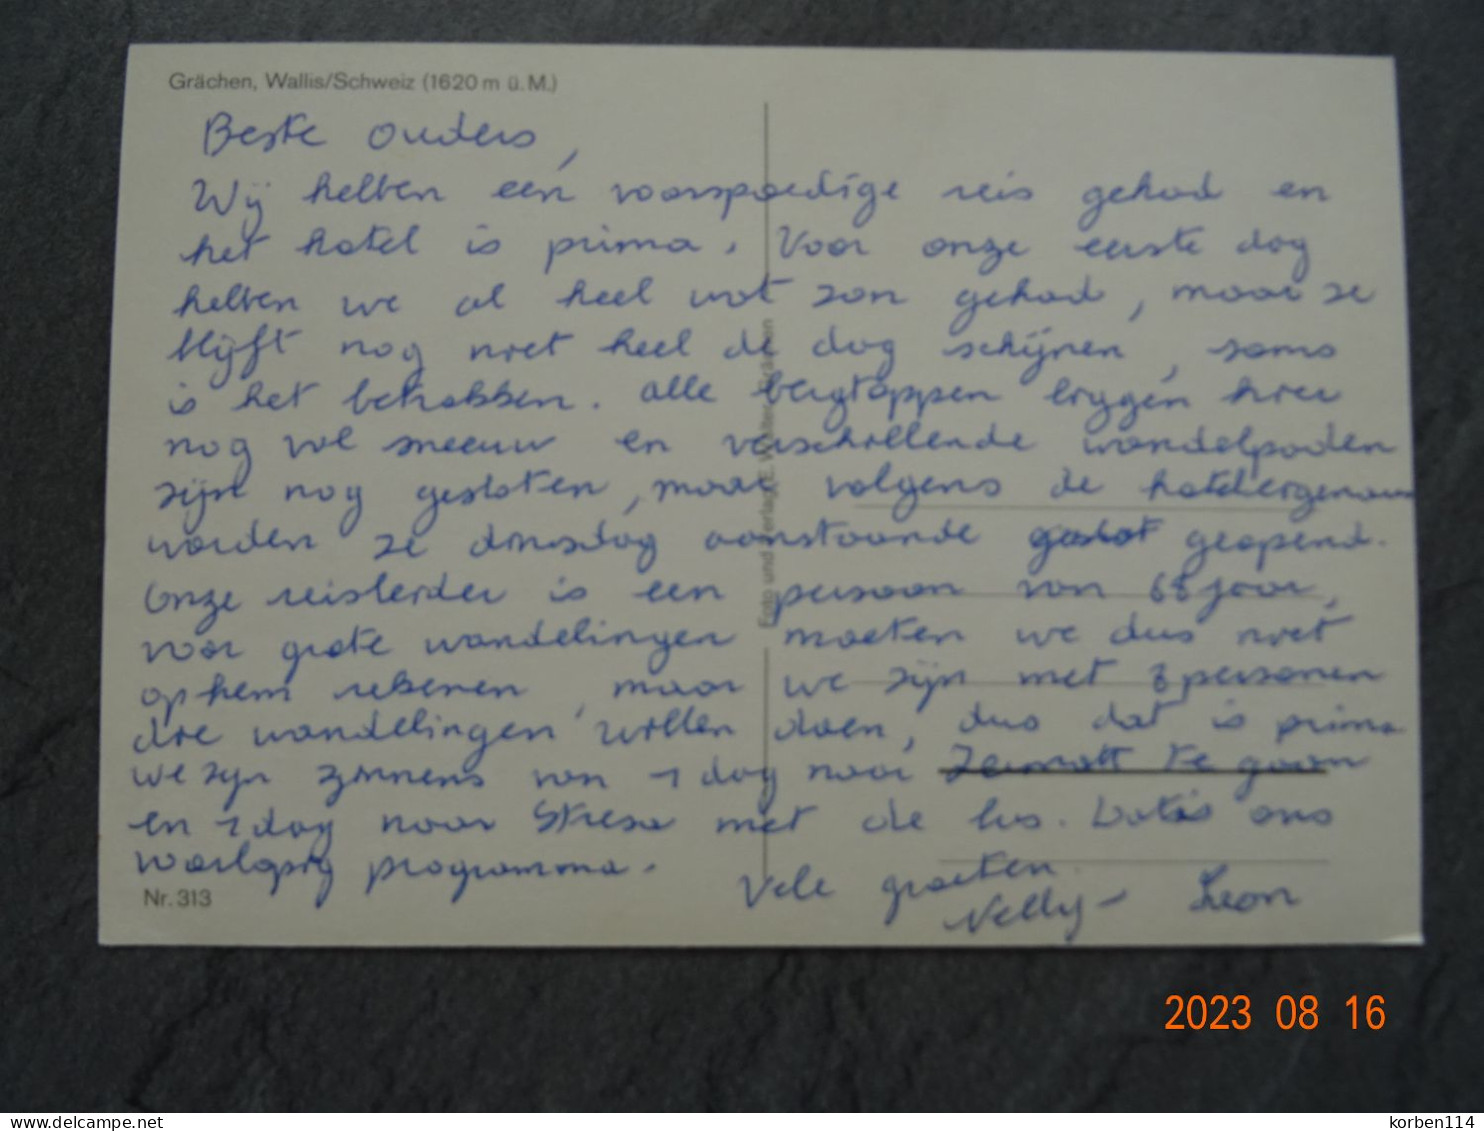 Grächen, Wallis/Schweiz (1620 m ü. M.)
Beste ouders,
Wij hebben een voorspoedige reis gehad en
het hotel is prima. Voor onze eerste dag
hebben we al heel wat zon gehad, maar ze
blijft nog niet heel de dag schijnen, soms
is het betrokken. Alle bergtoppen liggen hier
nog vol sneeuw en verschillende wandelpaden
zijn nog gesloten, maar volgens de
worden ze dinsdag aanstaande geopend.
Onze reisleider is een persoon van 68 jaar,
voor grote wandelingen moeten we dus niet
op hem rekenen, maar we zijn met 8 personen
die wandelingen willen doen, dus dat is prima
we zijn zinnens van 1 dag naar Zermatt te gaan
en 1 dag naar Stresa met de bus. Dat is ons
voorlopig programma.
Vele groeten.
Nelly - Leon
Nr. 313
Foto und Verlag E. Walter, Grächen
2023 08 16
delcampe.net
korben114